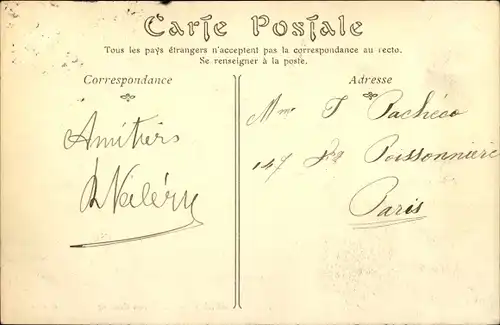 Carte Postale
Tous les pays étrangers n'acceptent pas la correspondance au recto.
Se renseigner à la poste.
Correspondance
Adresse
Amitiers
Valéry
Mme J Pachéco
147 Poissonniere
Paris